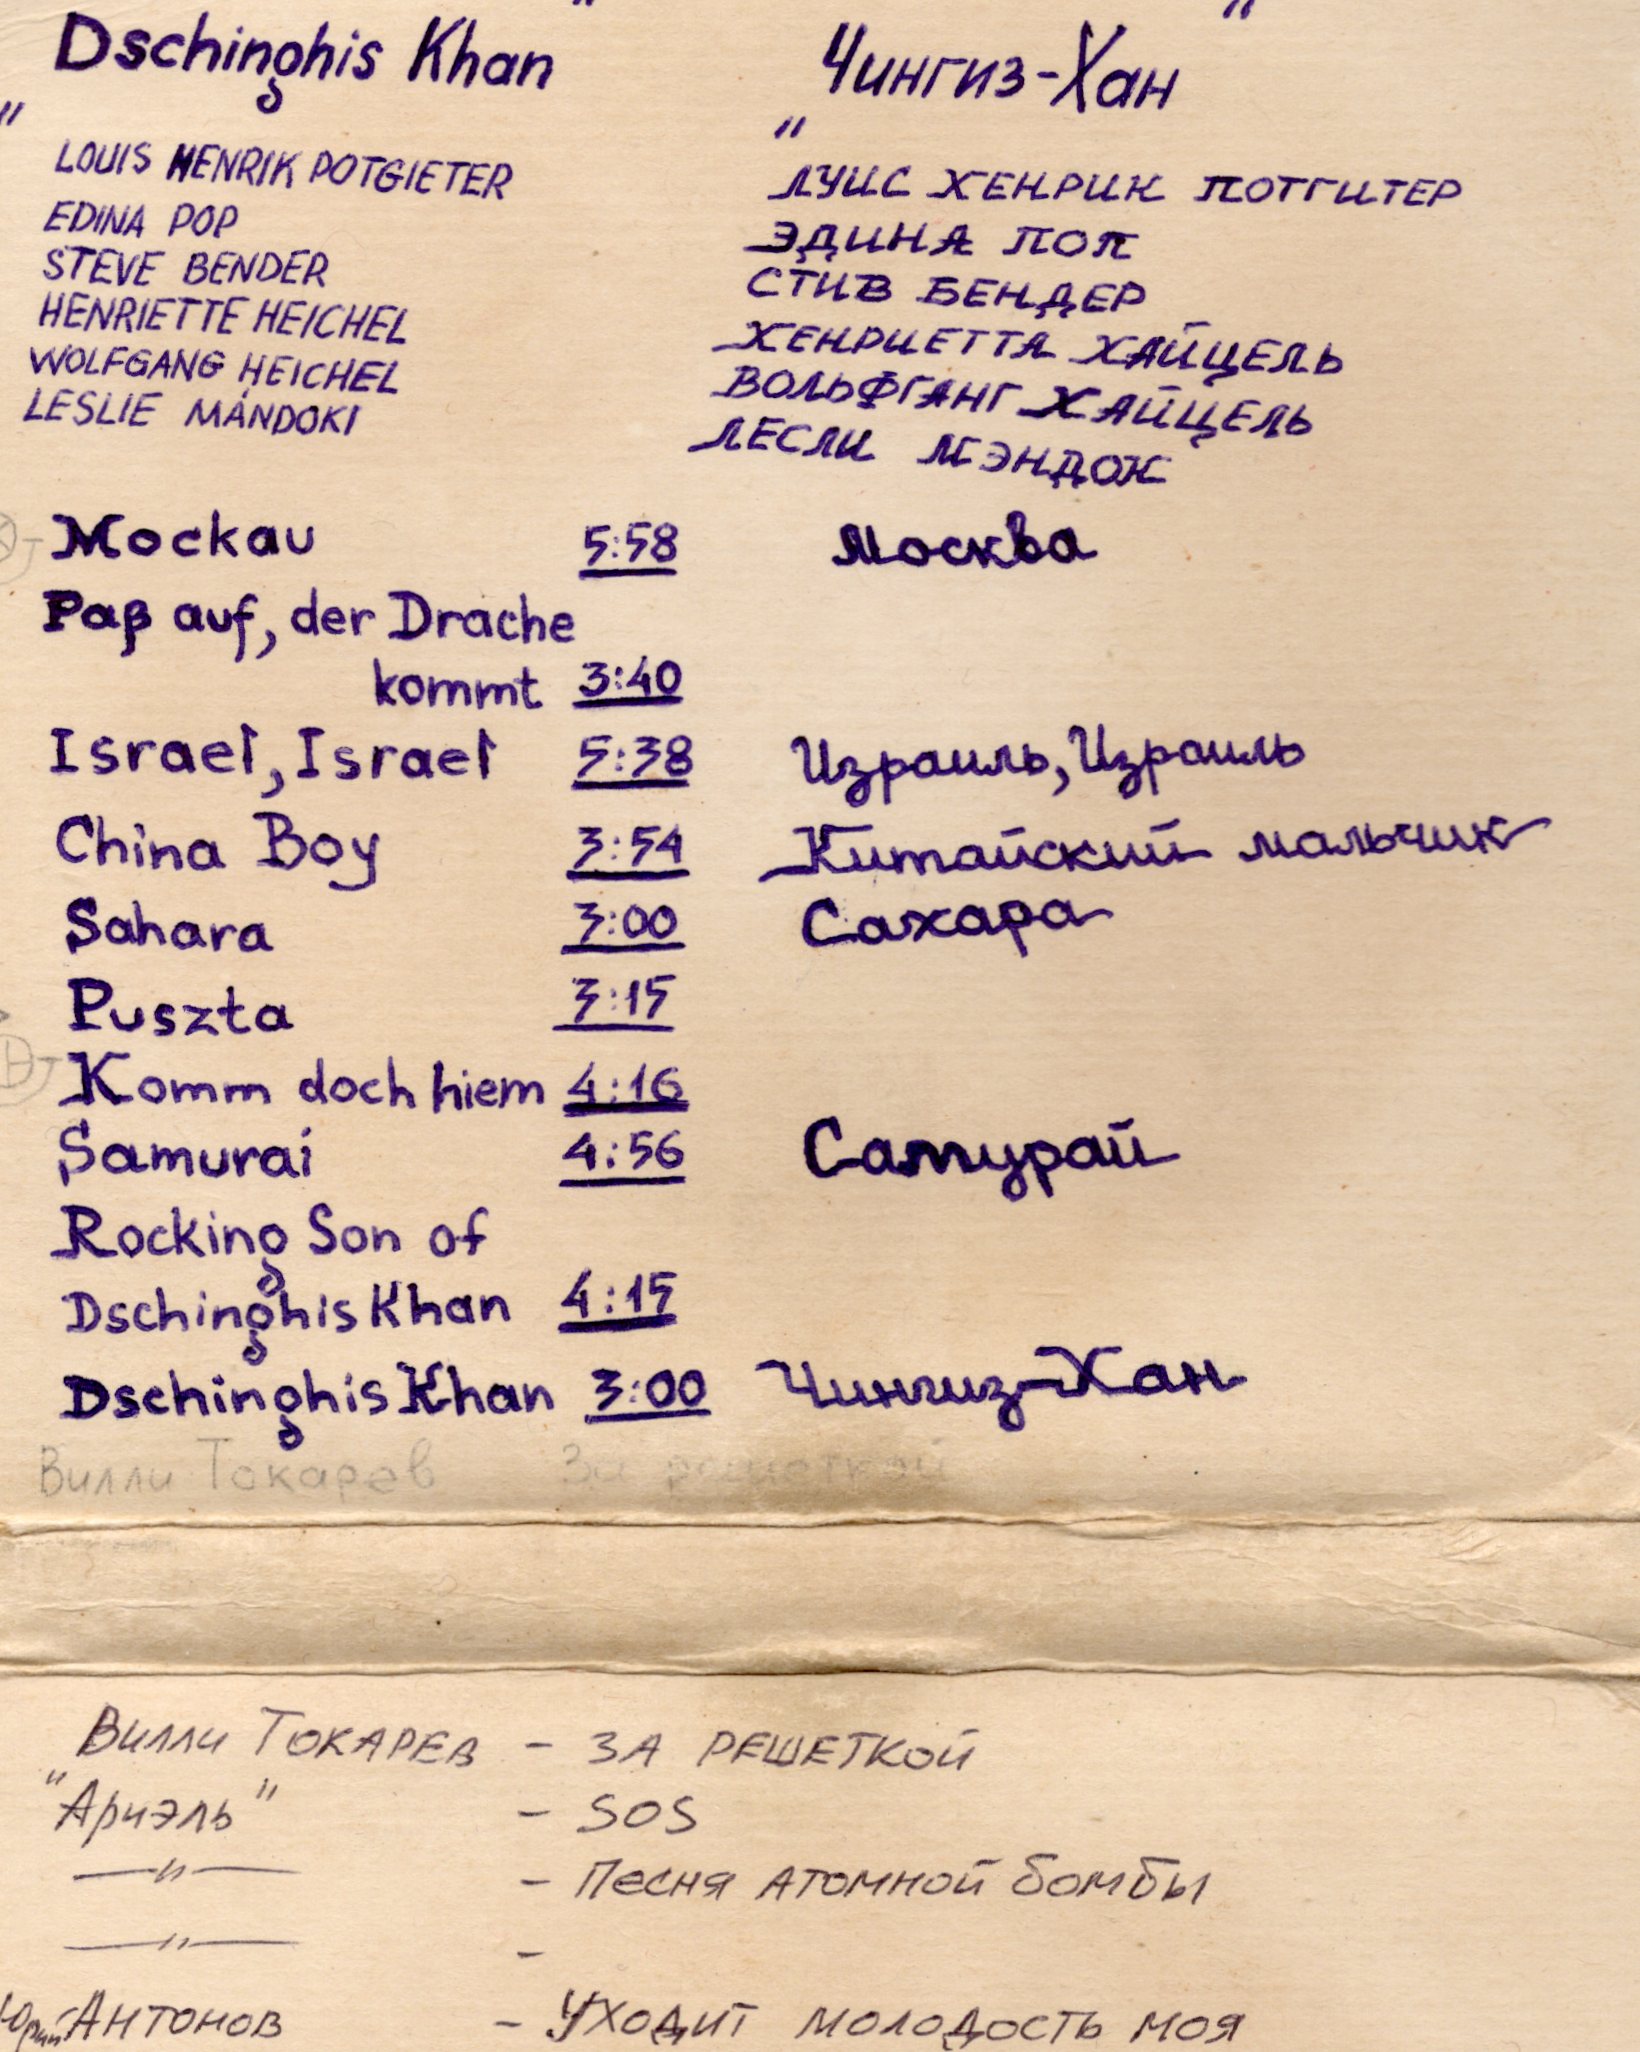 "Dschinghis Khan" "Чингиз-Хан"
LOUIS HENRIK POTGIETER ЛУИС ХЕНРИК ПОТГИТЕР
EDINA POP ЭДИНА ПОП
STEVE BENDER СТИВ БЕНДЕР
HENRIETTE HEICHEL ХЕНРИЕТТА ХАЙЦЕЛЬ
WOLFGANG HEICHEL ВОЛЬФГАНГ ХАЙЦЕЛЬ
LESLIE MÁNDOKI ЛЕСЛИ МЭНДОК
Mockau 5:58 Москва
Paß auf, der Drache
kommt 3:40
Israel, Israel 5:38 Израиль, Израиль
China Boy 3:54 Китайский мальчик
Sahara 3:00 Сахара
Puszta 3:15
Komm doch hiem 4:16
Samurai 4:56 Самурай
Rocking Son of
Dschinghis Khan 4:15
Dschinghis Khan 3:00 Чингиз-Хан
Вилли Токарев За решоткой
Вилли Токарев - ЗА РЕШЕТКОЙ
"Ариэль" - SOS
—"— - Песня атомной бомбы
—"— -
Юрий Антонов - Уходит молодость моя